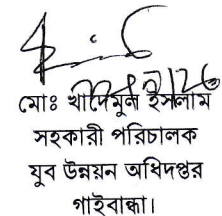 মোঃ খাদেমুল ইসলাম
সহকারী পরিচালক
যুব উন্নয়ন অধিদপ্তর
গাইবান্ধা।